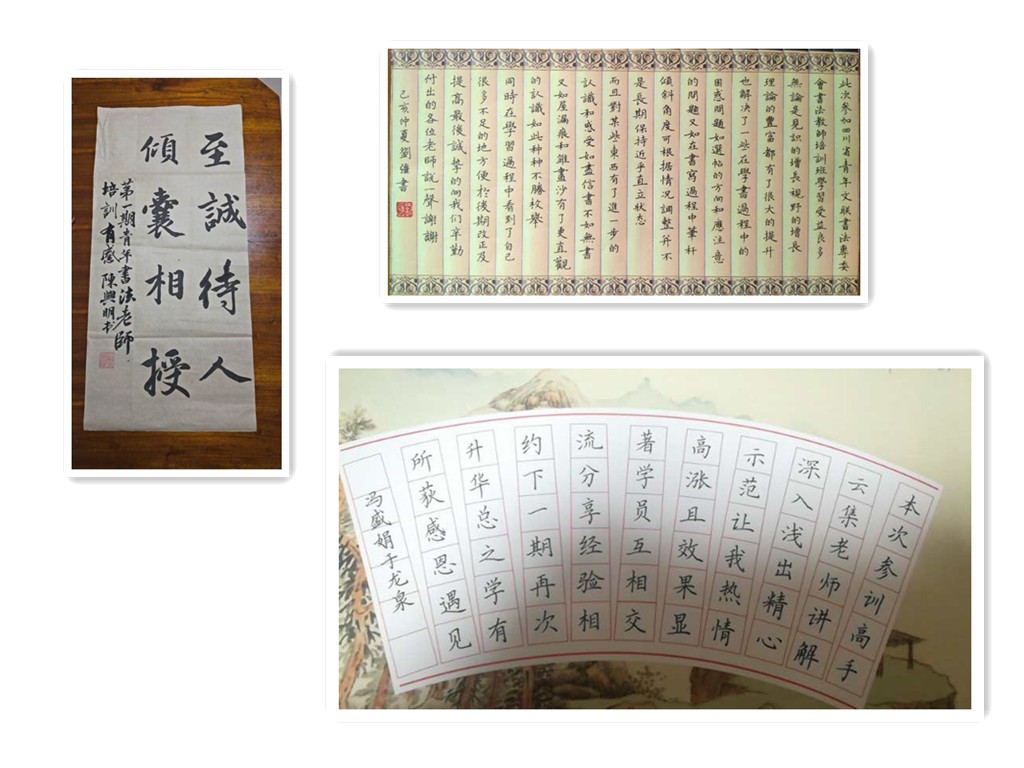 至誠待人
傾囊相授
第一期青年書法老師
培訓有感 陳興明书
此次参加四川省青年文联書法專委
會書法教師培訓班學習受益良多
無論是見識的增長視野的增長
理論的豐富都有了很大的提升
也解决了一些在學書過程中的
困惑問題如選帖的方向和應注意
的問題又如在書寫過程中筆杆
傾斜角度可根據情况調整并不
是長期保持近乎直立狀态
而且對某些東西有了進一步的
認識和感受如盡信書不如無書
又如屋漏痕和錐畫沙有了更直觀
的认識如此种种不勝枚舉
同時在學習過程中看到了自己
很多不足的地方便於後期改正及
提高最後誠挚的向我们辛勤
付出的各位老師説一聲謝謝
己亥仲夏劉强書
本次参训高手
云集老师讲解
深入浅出精心
示范让我热情
高涨且效果显
著学员互相交
流分享经验相
约下一期再次
升华总之学有
所获感恩遇见
冯盛娟于龙泉